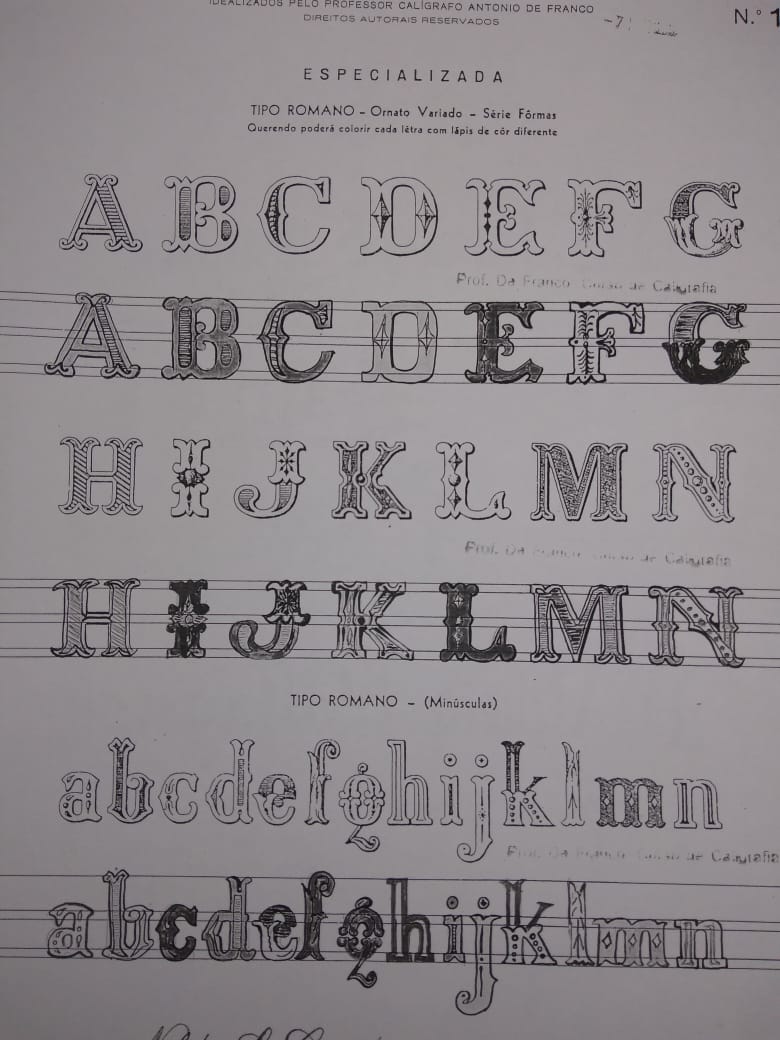 IDEALIZADOS PELO PROFESSOR CALÍGRAFO ANTONIO DE FRANCO
DIREITOS AUTORAIS RESERVADOS
N.º 1
ESPECIALIZADA
TIPO ROMANO – Ornato Variado – Série Fôrmas
Querendo poderá colorir cada létra com lápis de côr diferente
A B C D E F G
Prof. De Franco Curso de Caligrafia
A B C D E F G
H I J K L M N
Prof. De Franco Curso de Caligrafia
H I J K L M N
TIPO ROMANO – (Minúsculas)
a b c d e f g h i j k l m n
Prof. De Franco Curso de Caligrafia
a b c d e f g h i j k l m n